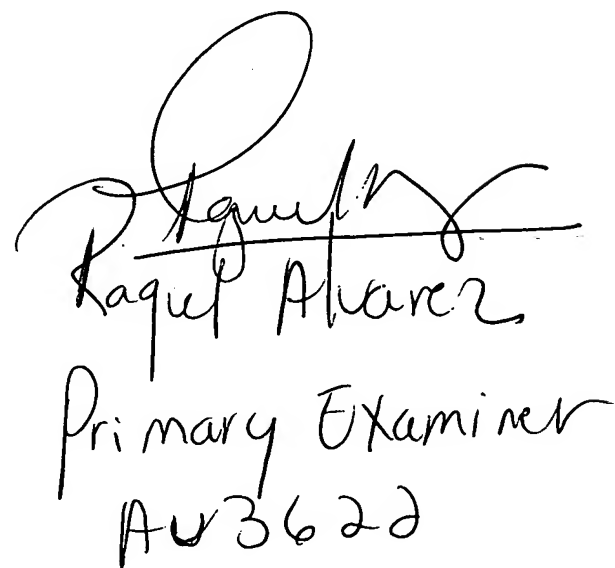 Raquel Alvarez
Primary Examiner
AU3622